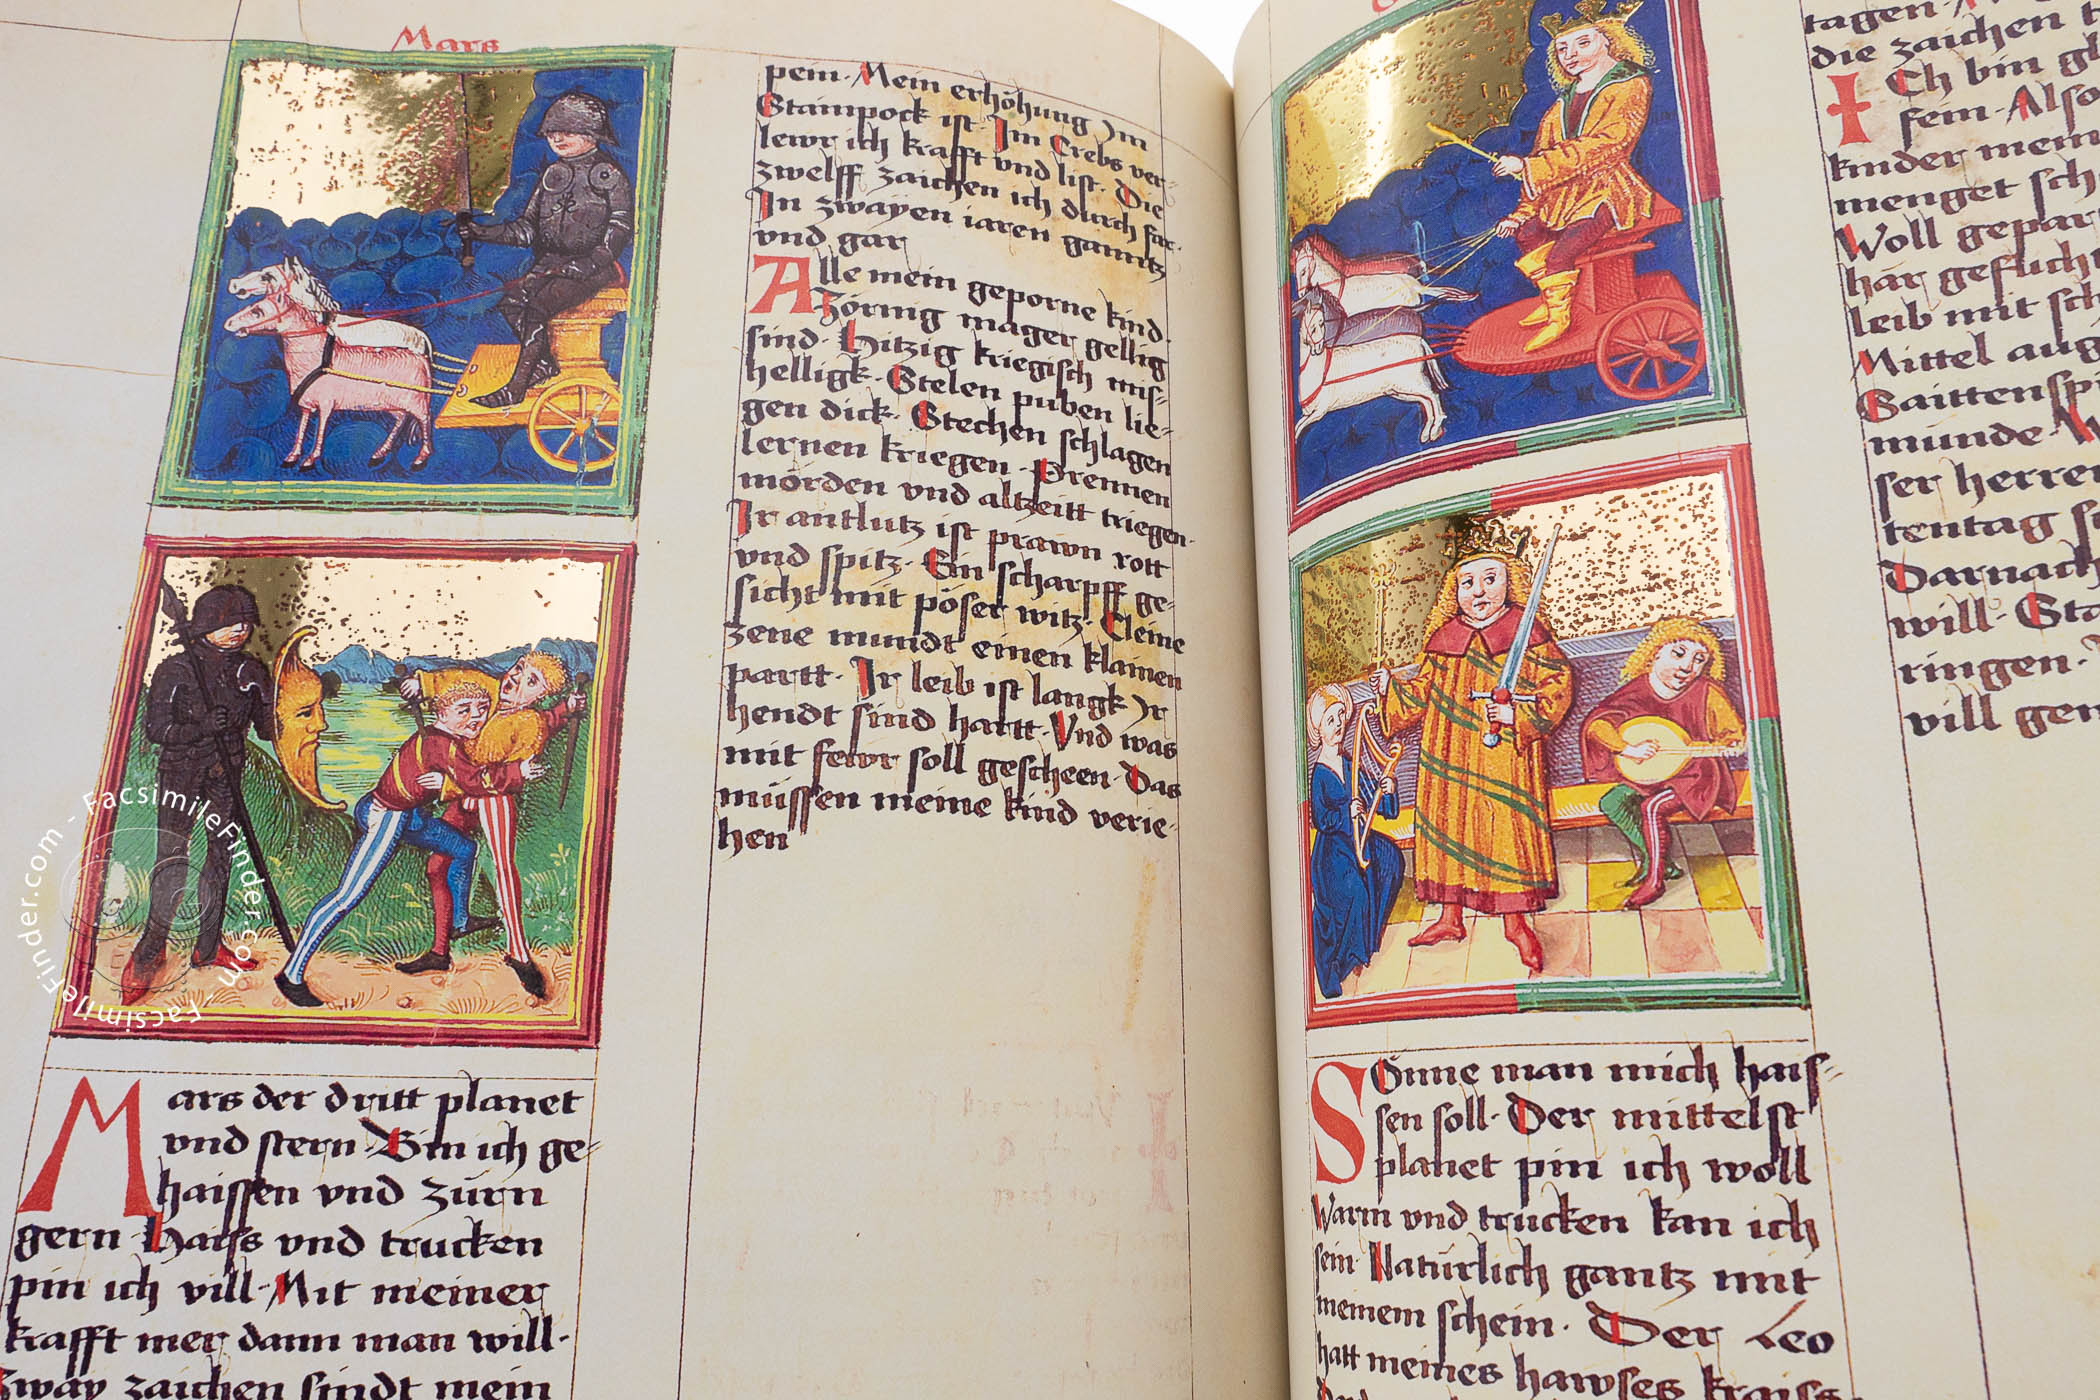 Mars
Mars der dritt planet
vnd stern Bin ich ge-
haissen vnd zürn
gern Haiss vnd trucken
pin ich vill Mit meiner
krafft mer dann man will
Zway zaichen sindt mein
pein Mein erhöhung Im
Stainpock ist Im Crebs ver-
lewr ich krafft vnd list Die
zwelff zaichen ich durch far
In zwayen iaren ganntz
vnd gar
Alle mein geporne kind
Zörnig mager gellig
sind Hitzig kriegisch mis-
helligk Stelen puben lie-
gen dick Stechen schlagen
lernen kriegen Prennen
mörden vnd altzeitt triegen
Ir antlutz ist prawn rott
vnd spitz Ein scharpff ge-
sicht mit pöser witz Cleine
zene mundt einen klainen
partt Ir leib ist langk Ir
hendt sind hartt Vnd was
mit fewr soll gescheen Das
müssen meine kind verie-
hen
SOnne man mich hais-
sen soll Der mittelst
planet pin ich woll
Warm vnd trucken kan ich
sein Natürlich gantz mit
meinem schein Der Leo
hatt meines hawses kraiss
tagen
die zaichen
ICh bin gl
fein Also
kinder mein
menget sch
Woll gepar
har
leib mit sch
Mittel aug
Saittenspi
munde W
ser herre
tentag s
Darnach
will Sta
ringen
vill ger
FacsimileFinder.com - FacsimileFinder.com
FacsimileFinder.com